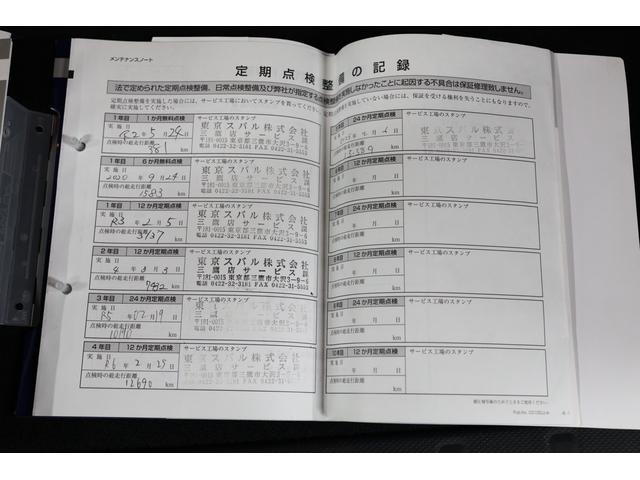 メンテナンスノート
定期点検整備の記録
法で定められた定期点検整備、日常点検整備及び弊社が指定する点検整備を実施しなかったことに起因する不具合は保証修理致しません。
定期点検整備を実施した場合には、サービス工場においてスタンプを買ってください。
実施していない場合には、保証を受ける権利を失うことにもなりますので、
確実に実施してください。
1年目 1か月無料点検 サービス工場のスタンプ
実施日 R2年5月24日
点検時の総走行距離
381 km
東京スバル株式会社
三鷹店サービス課
〒181-0015 東京都三鷹市大沢3-9-6
電話 0422-32-3181 FAX 0422-31-3553
1年目 6か月無料点検 サービス工場のスタンプ
実施日
2020年9月24日
点検時の総走行距離
1583 km
東京スバル株式会社
三鷹店サービス課
〒181-0015 東京都三鷹市大沢3-9-6
電話 0422-32-3181 FAX 0422-31-3553
1年目 12か月定期点検 サービス工場のスタンプ
実施日
R3年2月5日
点検時の総走行距離
3737 km
東京スバル株式会社
三鷹店サービス課
〒181-0015 東京都三鷹市大沢3-9-6
電話 0422-32-3181 FAX 0422-31-3553
2年目 12か月定期点検 サービス工場のスタンプ
実施日
点検時の総走行距離
km
東京スバル株式会社
三鷹店サービス課
〒181-0015 東京都三鷹市大沢3-9-6
電話 0422-32-3181 FAX 0422-31-3553
3年目 24か月定期点検 サービス工場のスタンプ
実施日
R5年02月19日
点検時の総走行距離
km
東京スバル株式会社
4年目 12か月定期点検 サービス工場のスタンプ
実施日 R6年2月25日
点検時の総走行距離
12690 km
東京スバル株式会社
三鷹店サービス課
〒181-0015 東京都三鷹市大沢3-9-6
電話 0422-32-3181 FAX 0422-31-3553
24か月定期点検 サービス工場のスタンプ
15589 km
12か月定期点検 サービス工場のスタンプ
実施日
年 月 日
点検時の総走行距離
km
24か月定期点検 サービス工場のスタンプ
実施日
年 月 日
点検時の総走行距離
km
12か月定期点検 サービス工場のスタンプ
実施日
年 月 日
点検時の総走行距離
km
24か月定期点検 サービス工場のスタンプ
実施日
年 月 日
点検時の総走行距離
km
10年目 12か月定期点検 サービス工場のスタンプ
実施日
年 月 日
点検時の総走行距離
km